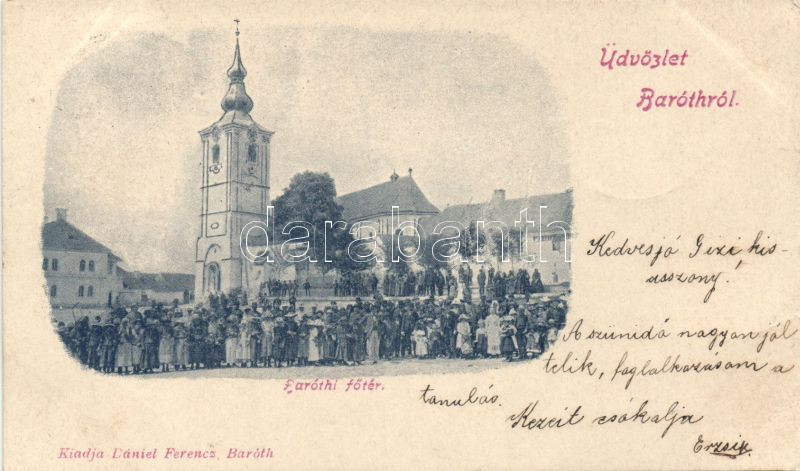 Üdvözlet
Baróthról.
darabanth.com
Kedvesjó Gizi kis-
asszony!
A szünidő nagyon jól
telik, foglalkozásom a
tanulás.
Kezeit csókolja
Erzsik.
Baróthi főtér.
Kiadja Dániel Ferencz, Baróth